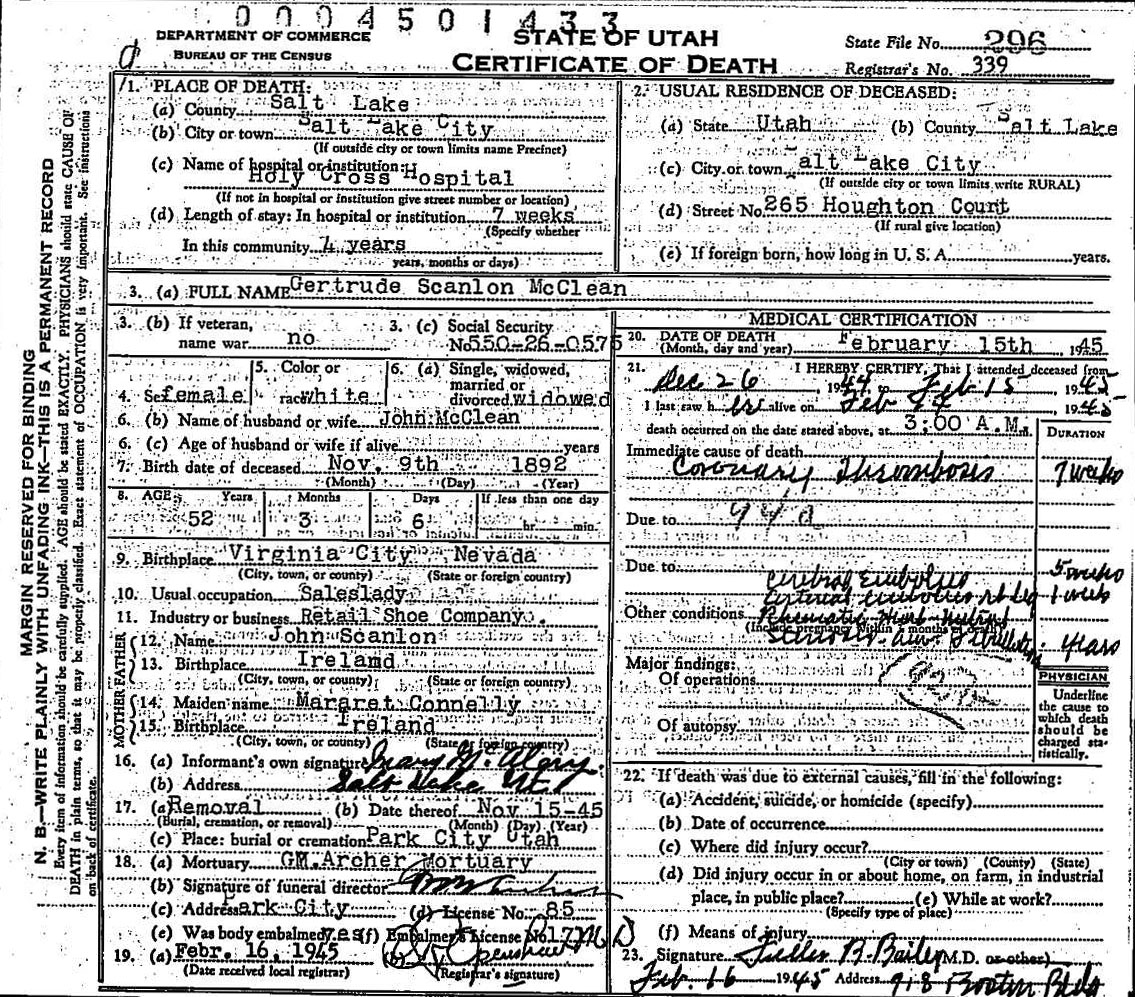 0004501433
DEPARTMENT OF COMMERCE
BUREAU OF THE CENSUS
STATE OF UTAH
CERTIFICATE OF DEATH
State File No. 296
Registrar's No. 339
MARGIN RESERVED FOR BINDING
N. B.—WRITE PLAINLY WITH UNFADING INK—THIS IS A PERMANENT RECORD
Every item of information should be carefully supplied. AGE should be stated EXACTLY. PHYSICIANS should state CAUSE OF
DEATH in plain terms, so that it may be properly classified. Exact statement of OCCUPATION is very important. See instructions
on back of certificate.
1. PLACE OF DEATH:
(a) County Salt Lake
(b) City or town Salt Lake City
(If outside city or town limits name Precinct)
(c) Name of hospital or institution:
Holy Cross Hospital
(If not in hospital or institution give street number or location)
(d) Length of stay: In hospital or institution 7 weeks
(Specify whether
In this community 4 years
years, months or days)
2. USUAL RESIDENCE OF DECEASED:
(a) State Utah (b) County Salt Lake
(c) City or town Salt Lake City
(If outside city or town limits write RURAL)
(d) Street No. 265 Houghton Court
(If rural give location)
(e) If foreign born, how long in U. S. A. years.
3. (a) FULL NAME Gertrude Scanlon McClean
3. (b) If veteran, name war no
3. (c) Social Security No. 550-26-0575
4. Sex female
5. Color or race white
6. (a) Single, widowed, married or divorced widowed
6. (b) Name of husband or wife John McClean
6. (c) Age of husband or wife if alive years
7. Birth date of deceased Nov. 9th 1892
(Month) (Day) (Year)
8. AGE Years Months Days If less than one day
52 3 6 hr. min.
9. Birthplace Virginia City Nevada
(City, town, or county) (State or foreign country)
10. Usual occupation Saleslady
11. Industry or business Retail Shoe Company.
FATHER
12. Name John Scanlon
13. Birthplace Irelamd
(City, town, or county) (State or foreign country)
MOTHER
14. Maiden name Mararet Connelly
15. Birthplace Ireland
(City, town, or county) (State or foreign country)
16. (a) Informant's own signature Mary
(b) Address Salt Lake Utah
17. (a) Removal (b) Date thereof Nov 15-45
(Burial, cremation, or removal) (Month) (Day) (Year)
(c) Place: burial or cremation Park City Utah
18. (a) Mortuary GM.Archer Mortuary
(b) Signature of funeral director
(c) Address Park City (d) License No. 85
(e) Was body embalmed yes (f) Embalmer's License No. 17
19. (a) Febr. 16, 1945 (b) M D
(Date received local registrar) (Registrar's signature)
MEDICAL CERTIFICATION
20. DATE OF DEATH
(Month, day and year) February 15th 1945
21. I HEREBY CERTIFY, That I attended deceased from
Dec 26 1944 to Feb 15 1945
I last saw her alive on Feb 14 1945
death occurred on the date stated above, at 3:00 A.M.
DURATION
Immediate cause of death
Coronary Thrombosis 7 weeks
Due to 94a
Due to
Cerebral Embolus 5 weeks
Arterial embolus rt leg 1 week
Other conditions Rheumatic Heart-Mitral
(Include pregnancy within 3 months of death)
Stenosis years
Major findings:
Of operations
Of autopsy
PHYSICIAN
Underline
the cause to
which death
should be
charged sta-
tistically.
22. If death was due to external causes, fill in the following:
(a) Accident, suicide, or homicide (specify)
(b) Date of occurrence
(c) Where did injury occur?
(City or town) (County) (State)
(d) Did injury occur in or about home, on farm, in industrial
place, in public place? (e) While at work?
(Specify type of place)
(f) Means of injury
23. Signature Fuller B. Bailey (M.D. or other)
Feb. 16 1945 Address 918 Boston Bldg